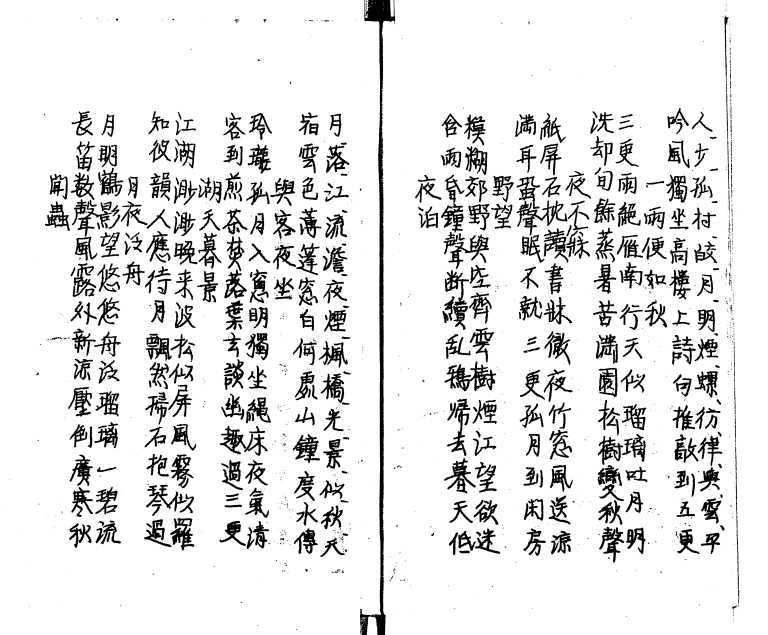 人步孤村皎月明煙螺彷律與雲平
吟風獨坐高樓上詩句推敲到五更
一雨便如秋
三更雨絕雁南行天似瑠璃吐月明
洗却旬餘蒸暑苦滿園松樹變秋聲
夜不寐
紙屏石枕讀書牀徹夜竹窓風送涼
滿耳蛩聲眠不就三更孤月到閑房
野望
模糊郊野與空齊雲樹煙江望欲迷
含雨昏鐘聲斷續乱鴉帰去暮天低
夜泊
月落江流澹夜煙楓橋光景似秋天
宿雲色薄蓬窓白何處山鐘度水傳
與客夜坐
玲瓏孤月入窓明獨坐繩床夜氣清
客到煎茶焚落葉玄談幽趣過三更
湖天暮景
江湖渺渺晚来波松似屏風霧似羅
知彼韻人應待月飄然掃石抱琴過
月夜泛舟
月明鶴影望悠悠舟泛瑠璃一碧流
長笛数聲風露外新涼壓倒廣寒秋
聞蟲